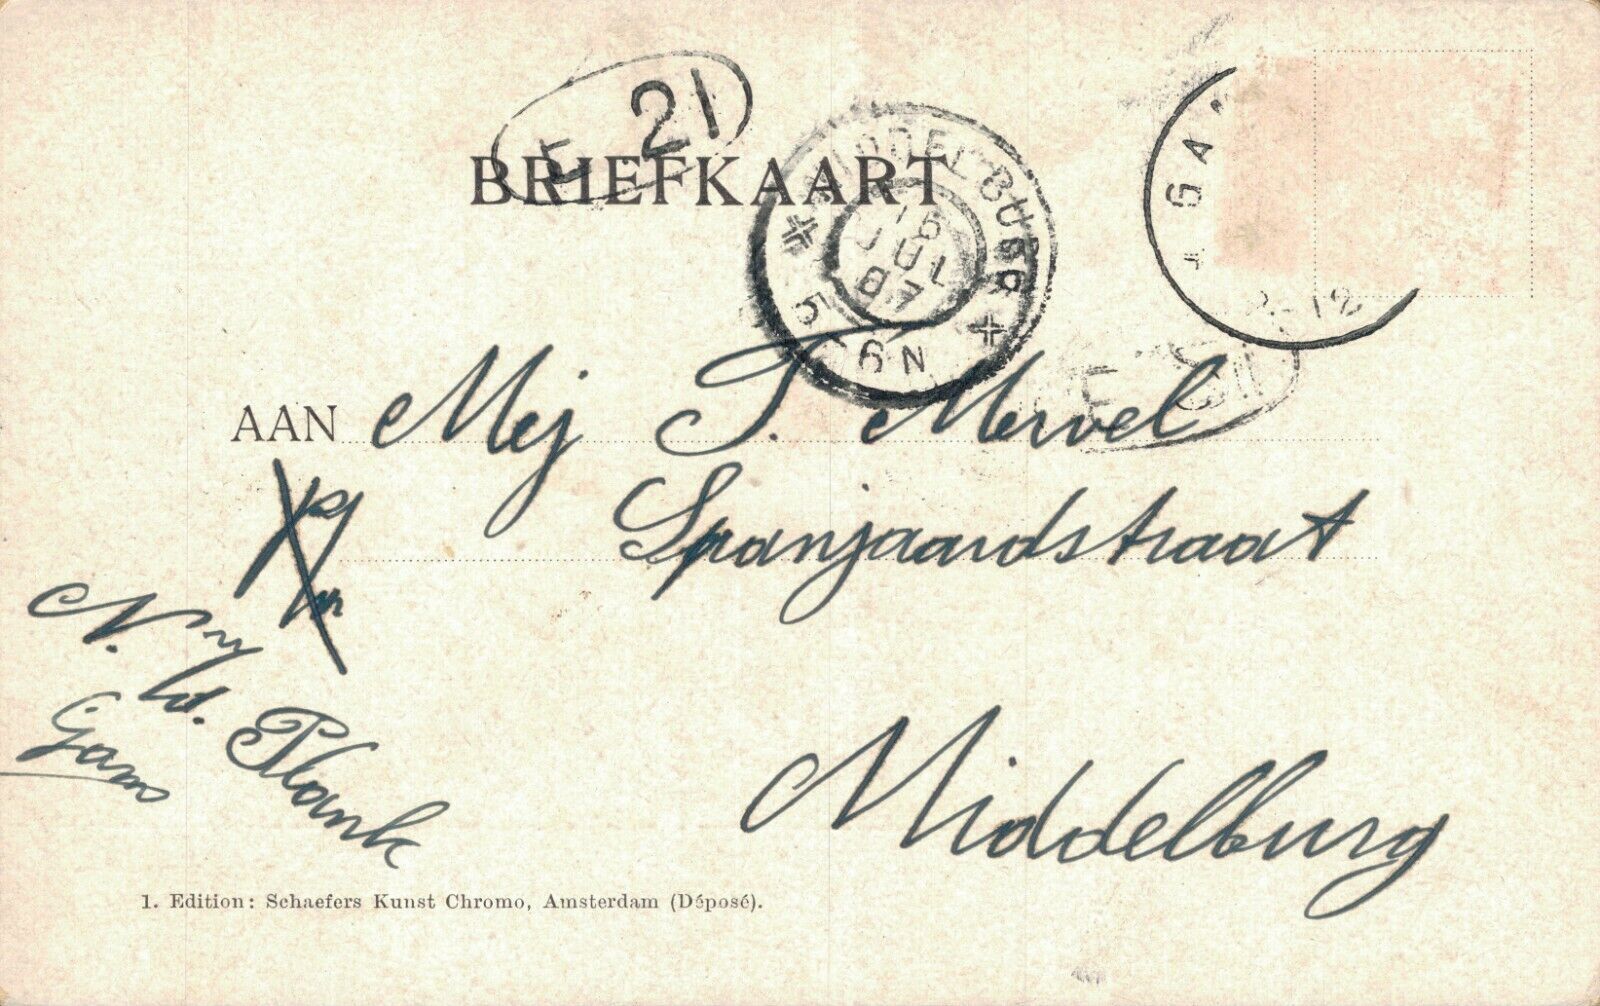 E 21
BRIEFKAART
MIDDELBURG
15
JUL
07
5 6N
GA
AAN Mej T. Mervel
Spanjaardstraat
N. v. d. Plank
Gans
Middelburg
1. Edition: Schaefers Kunst Chromo, Amsterdam (Déposé).